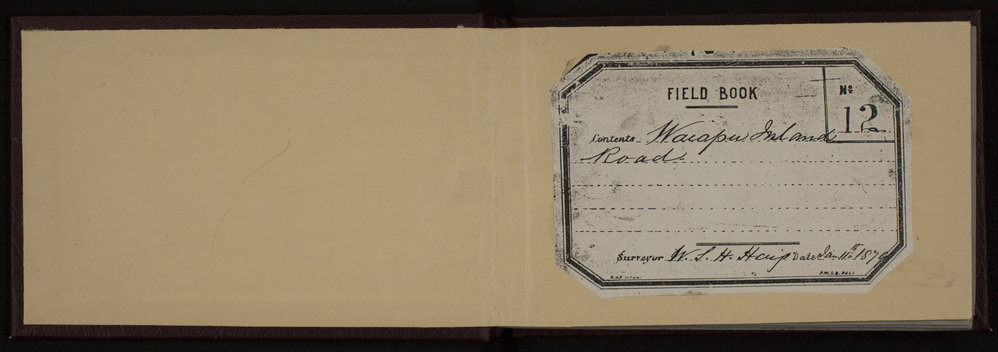 FIELD BOOK
No
12
Contents Waiapu Inland
Road
Surveyor W. L. H. Haig Date Jan 11th 1879